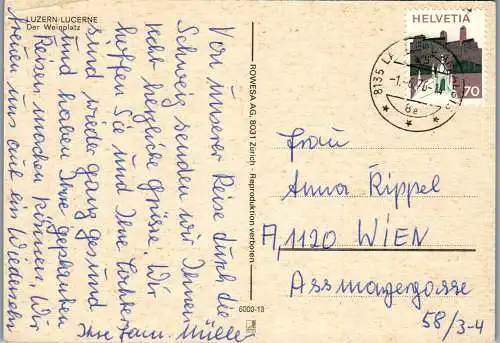 LUZERN-LUCERNE
Der Weinplatz
Von unserer Reise durch die
Schweiz senden wir Ihnen
recht herzliche Grüsse. Wir
hoffen Sie und Ihre Tochter
sind wieder ganz gesund
und haben Ihre geplanten
Reisen machen können. Wir
freuen uns auf ein Wiedersehn
Ihre Fam. Müller
ROWESA AG, 8031 Zürich - Reproduktion verboten
6000-13
HELVETIA
70
8135
Frau
Anna Rippel
A, 1120 WIEN
Assmayergasse
58/3-4